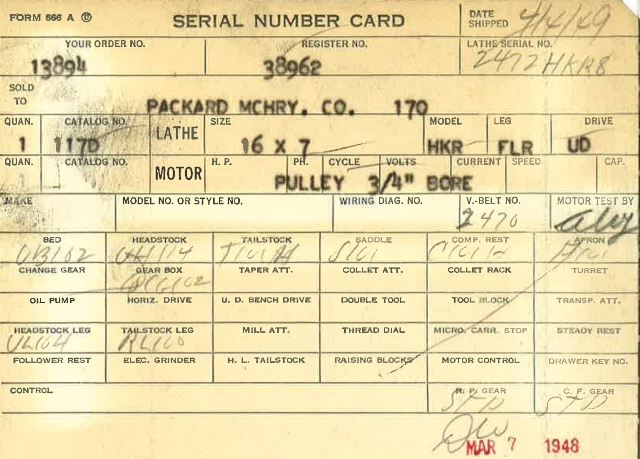 FORM 666 A
SERIAL NUMBER CARD
DATE SHIPPED 4/4/49
YOUR ORDER NO. REGISTER NO. LATHE SERIAL NO.
13894 38962 2472HKR8
SOLD TO PACKARD MCHRY. CO. 170
QUAN. CATALOG NO. LATHE SIZE MODEL LEG DRIVE
1 117D 16 X 7 HKR FLR UD
QUAN. CATALOG NO. MOTOR H. P. PH. CYCLE VOLTS CURRENT SPEED CAP.
PULLEY 3/4" BORE
MAKE MODEL NO. OR STYLE NO. WIRING DIAG. NO. V.-BELT NO. MOTOR TEST BY
2470
BED HEADSTOCK TAILSTOCK SADDLE COMP. REST APRON
CHANGE GEAR GEAR BOX TAPER ATT. COLLET ATT. COLLET RACK TURRET
OIL PUMP HORIZ. DRIVE U. D. BENCH DRIVE DOUBLE TOOL TOOL BLOCK TRANSP. ATT.
HEADSTOCK LEG TAILSTOCK LEG MILL ATT. THREAD DIAL MICRO. CARR. STOP STEADY REST
UL164 RL160
FOLLOWER REST ELEC. GRINDER H. L. TAILSTOCK RAISING BLOCKS MOTOR CONTROL DRAWER KEY NO.
CONTROL R. P. GEAR C. F. GEAR
STD STD
MAR 7 1948